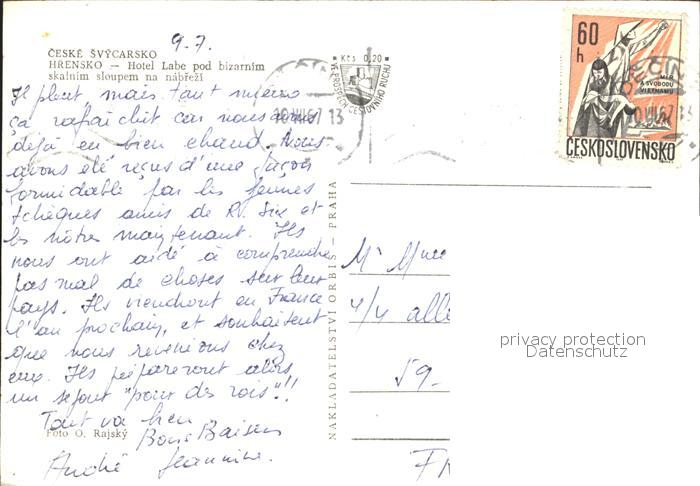 9.7.
ČESKÉ ŠVÝCARSKO
HŘENSKO – Hotel Labe pod bizarním
skalním sloupem na nábřeží
Il pleut mais tant mieux
ça rafraîchit car nous avons
déjà eu bien chaud. Nous
avons été reçus d'une façon
formidable par les jeunes
tchèques amis de et
les nôtres maintenant. Ils
nous ont aidé à comprendre
pas mal de choses sur leur
pays. Ils viendront en France
l'an prochain, et souhaitent
que nous revenions chez
eux. Ils prépareront alors
un séjour "pour des rois"!!
Tout va bien
Bons Baisers
Foto O. Rajský
André Jeannine.
NAKLADATELSTVÍ ORBIS – PRAHA
Kčs 0,20
VE PROSPĚCH CESTOVNÍHO RUCHU
10.VII.67.13
60
h
MÍR
A SVOBODU
VIETNAMU
ČESKOSLOVENSKO
DĚČÍN
10.VII.67.13
Mr Mme
4/4 allé
59-
FR
privacy protection
Datenschutz